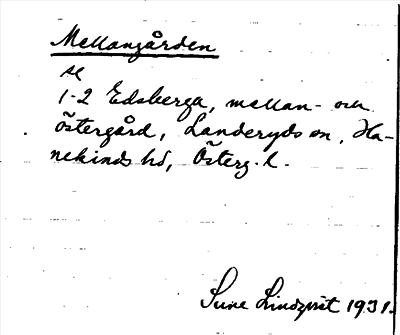 Mellangården
se
1-2 Edsberga, mellan- och
Östergård, Landeryds sn, Ha-
nekinds hd, Österg. l.
Sune Lindqvist 1931.